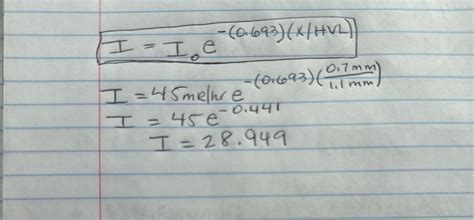 I = I₀e^-(0.693)(X/HVL)
I = 45mR/hr e^-(0.693)(0.7mm/1.1mm)
I = 45e^-0.441
I = 28.949